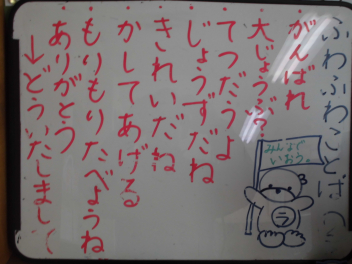 ふわふわことば
がんばれ
大じょうぶ?
てつだうよ
じょうずだね
きれいだね
かしてあげる
もりもりたべようね
ありがとう
→どういたしまして
みんなで
いおう。
ラ